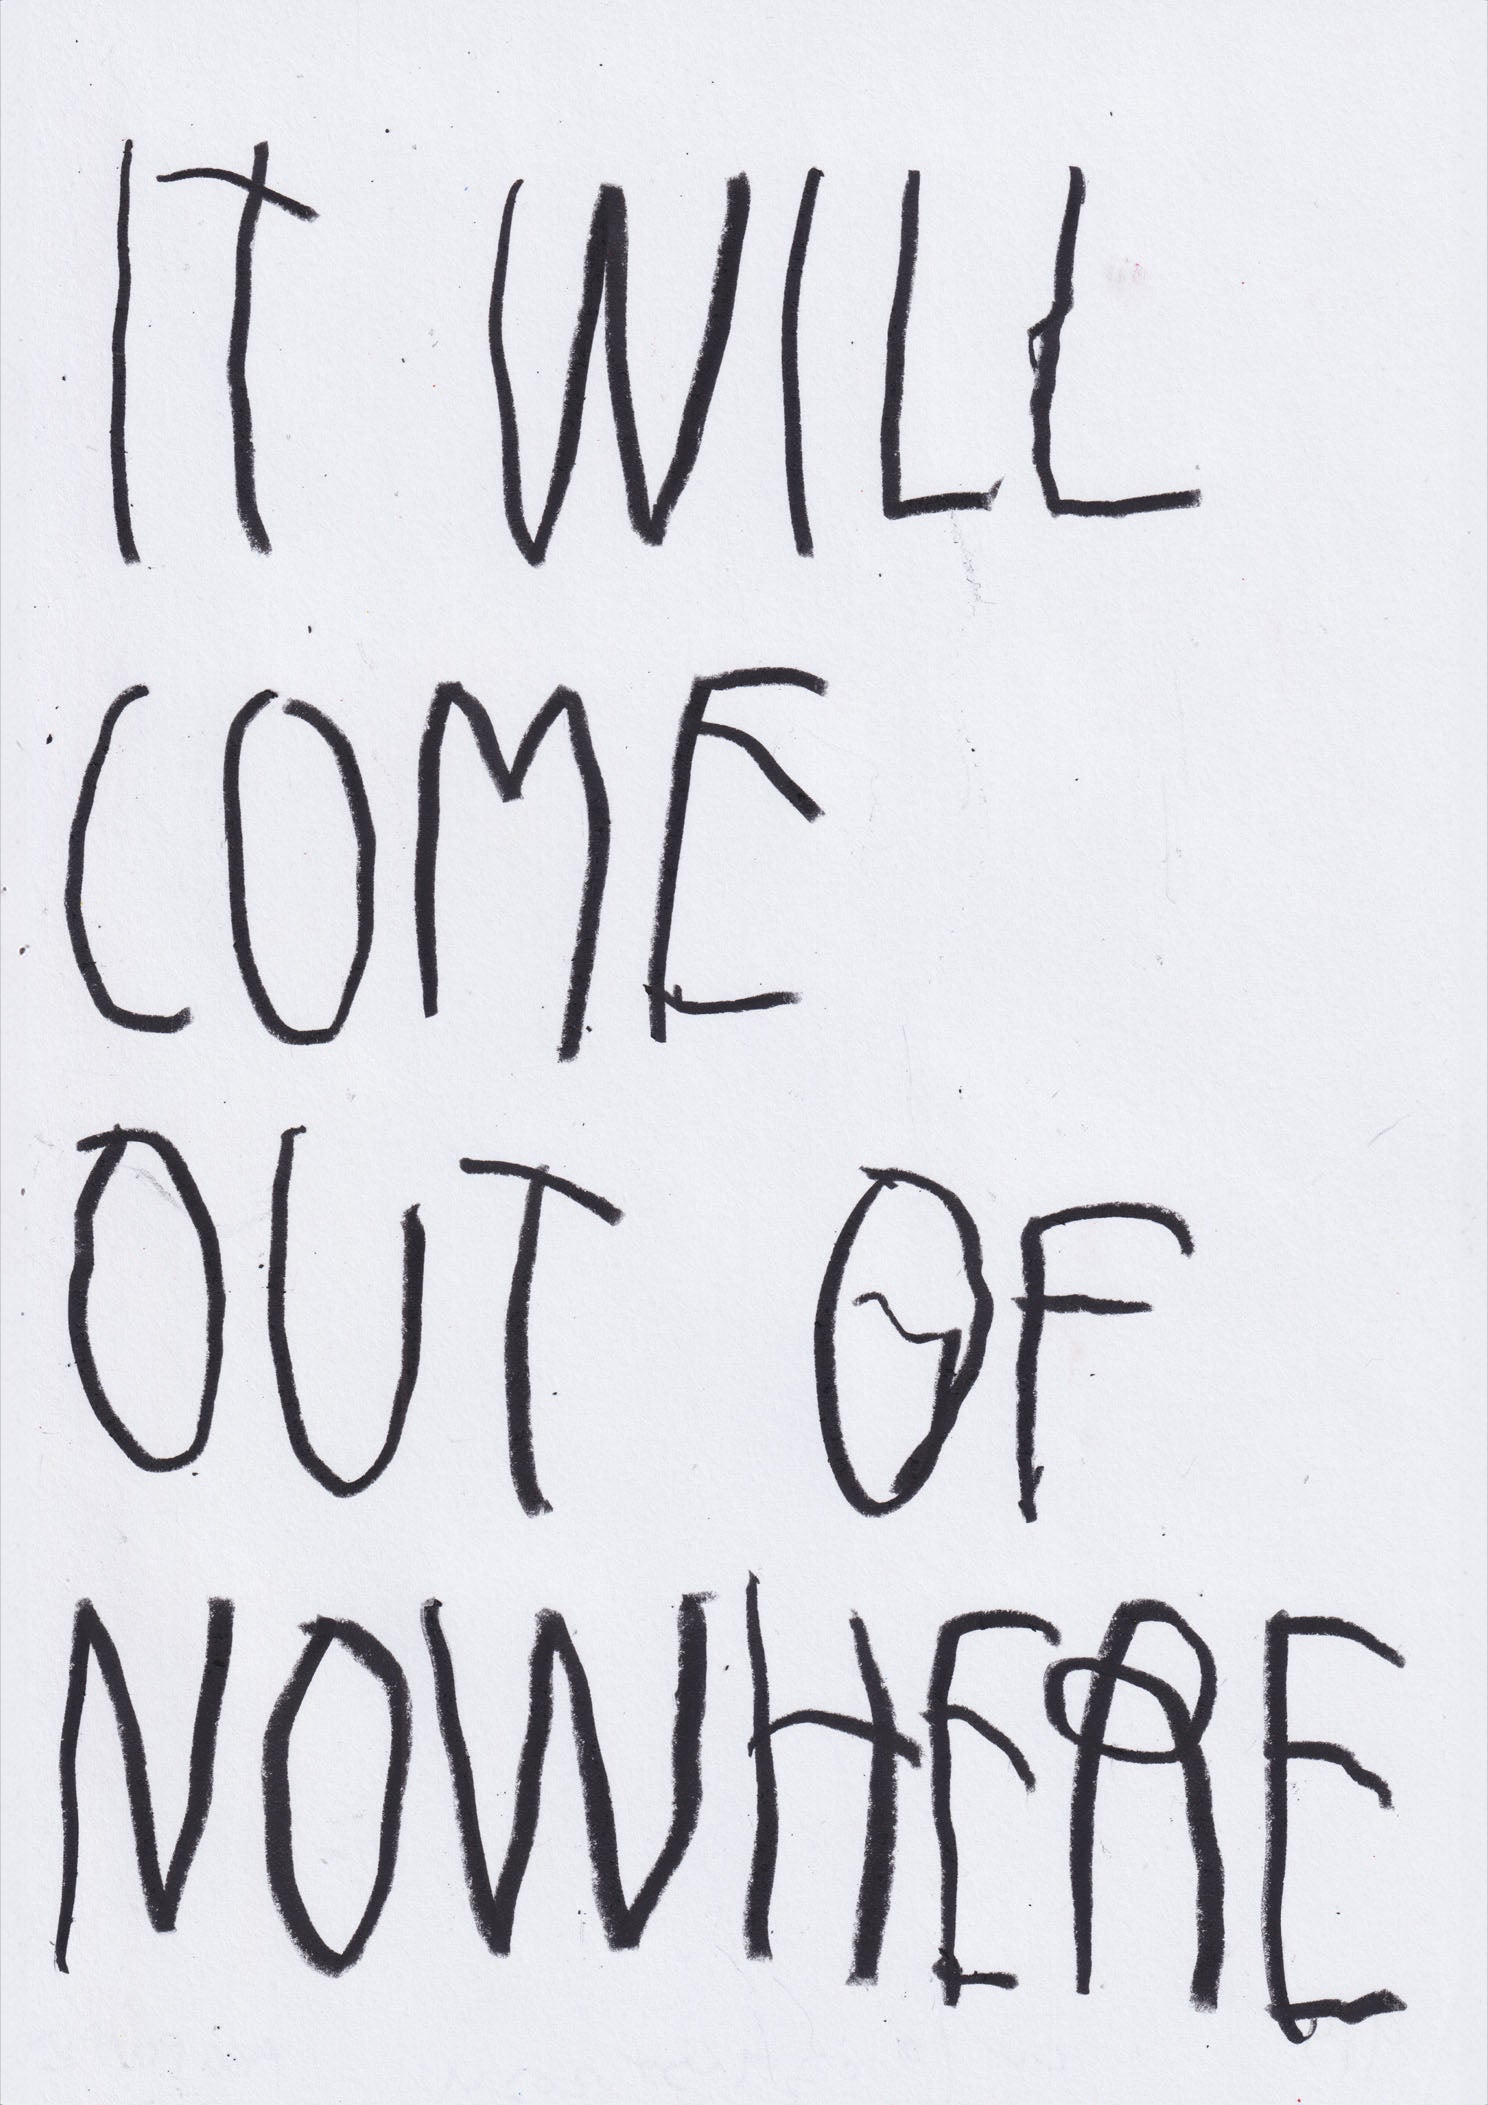 IT WILL
COME
OUT OF
NOWHERE